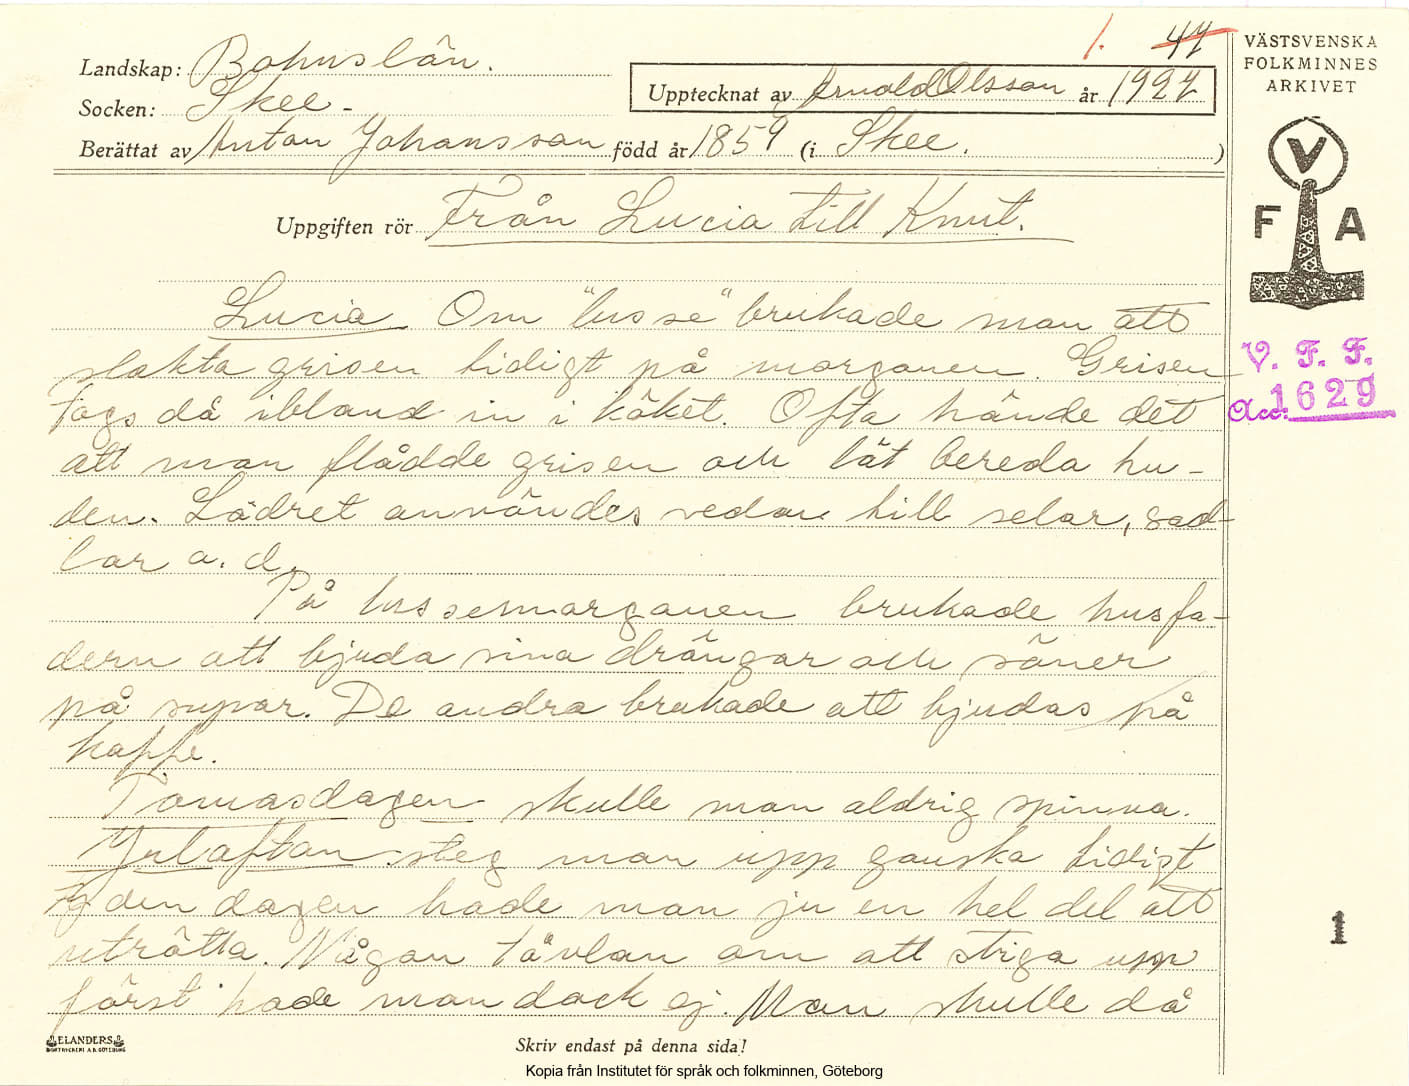 1. 44
VÄSTSVENSKA
FOLKMINNES
ARKIVET
Landskap: Bohuslän.
Socken: Skee -
Upptecknat av Arnold Olsson år 1927
Berättat av Anton Johansson född år 1859 (i Skee. )
V
F A
Uppgiften rör Från Lucia till Knut.
Lucia Om "lusse" brukade man att
slakta grisen tidigt på morgonen. Grisen
togs då ibland in i köket. Ofta hände det
att man flådde grisen och lät bereda hu-
den. Lädret användes sedan till selar, sad-
lar a. d.
På lussemorgonen brukade husfa-
dern att bjuda sina drängar och söner
på supar. De andra brukade att bjudas på
kaffe.
Tomasdagen skulle man aldrig spinna.
Julaftan steg man upp ganska tidigt
ty den dagen hade man ju en hel del att
uträtta. Någon tävlan om att stiga upp
först hade man dock ej. Man skulle då
V. F. F.
Acc: 1629
1
ELANDERS
BOKTRYCKERI A.B. GÖTEBORG
Skriv endast på denna sida!
Kopia från Institutet för språk och folkminnen, Göteborg